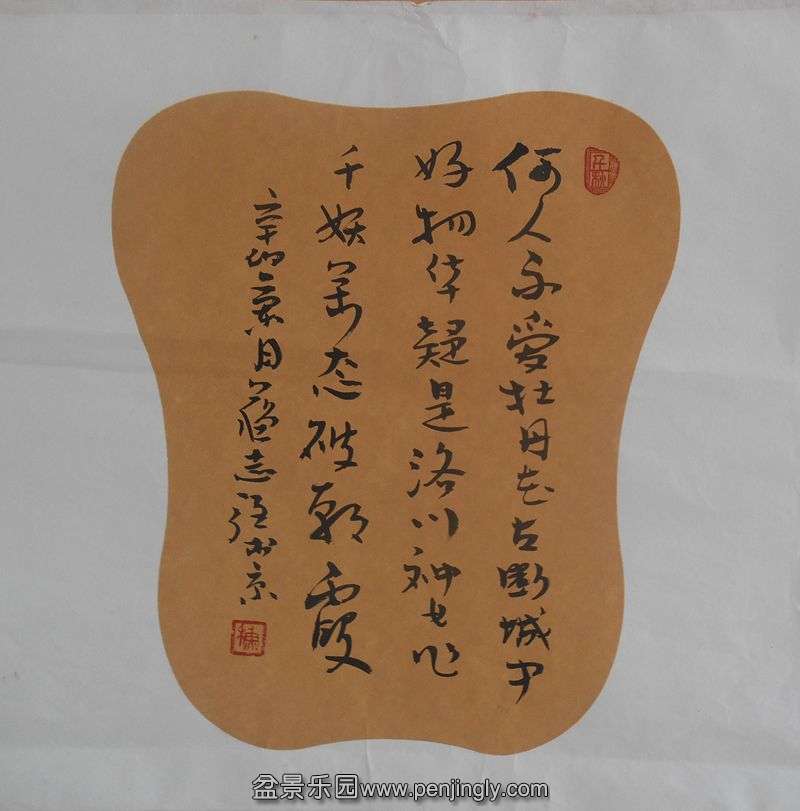 何人不爱牡丹花占断城中
好物华疑是洛川神女作
千娇万态破朝霞
辛卯 月 志强书京
盆景乐园www.penjingly.com